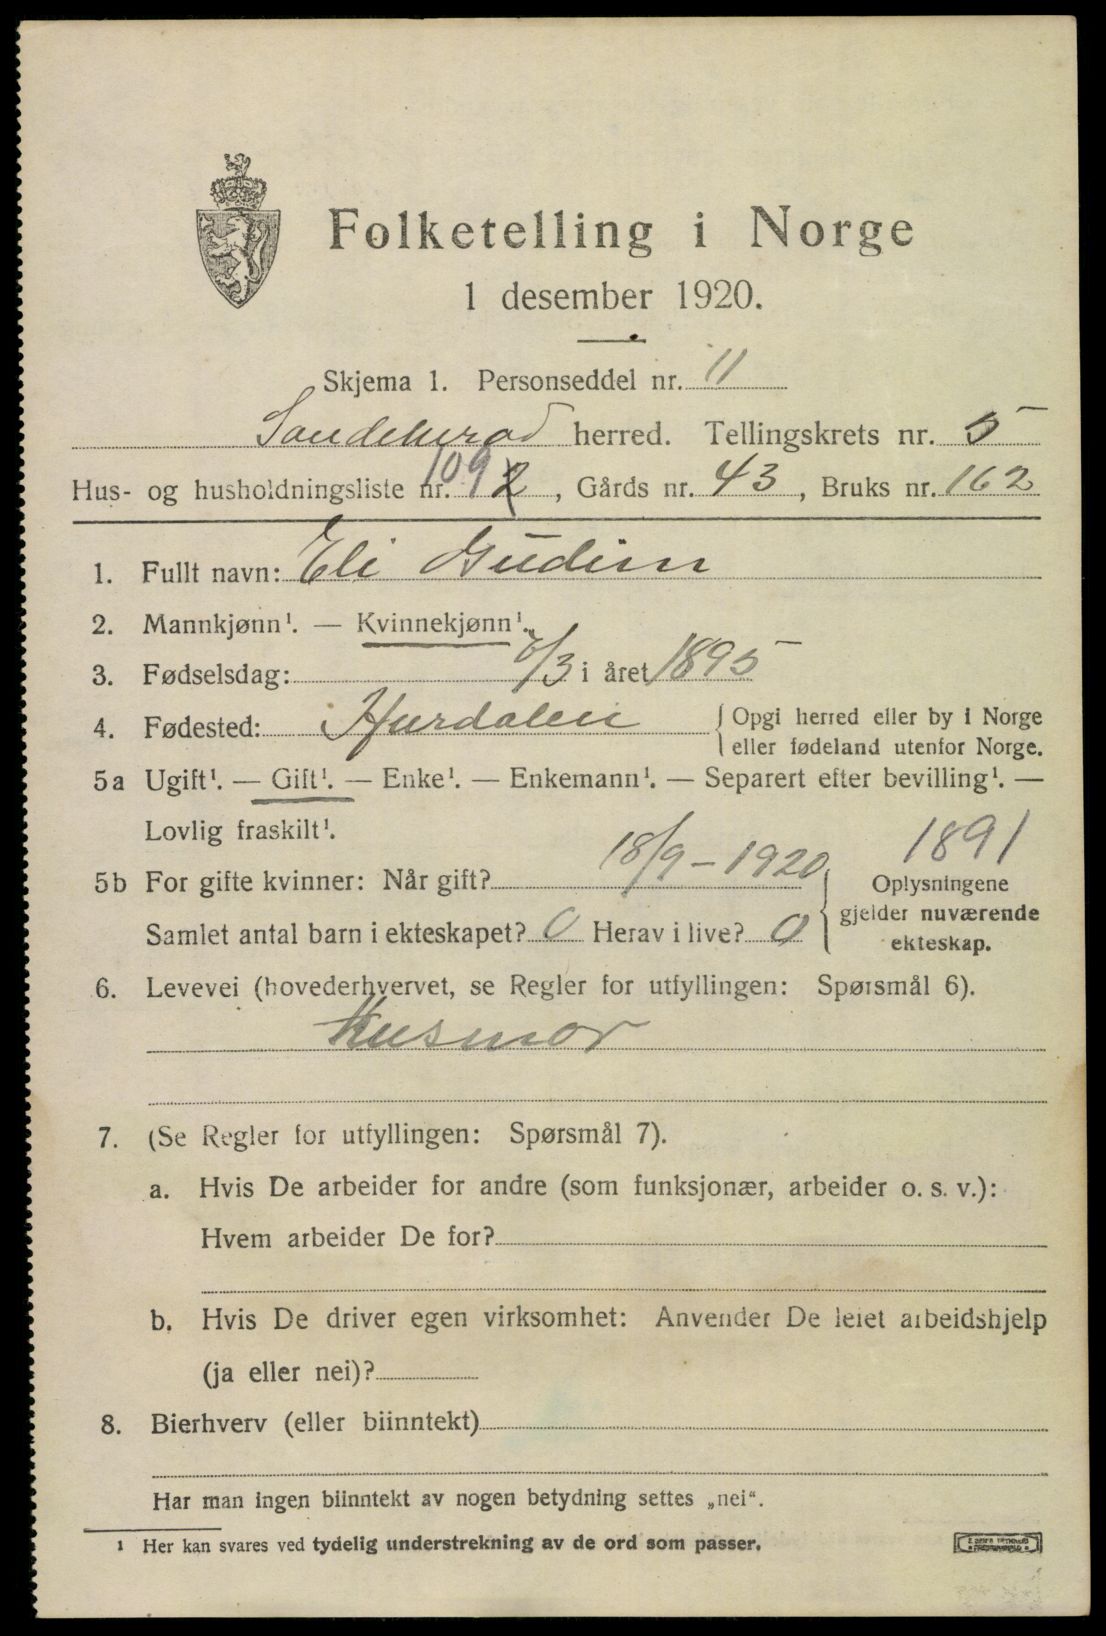 Folketelling i Norge
1 desember 1920.
Skjema 1. Personseddel nr. 11
Sandeherad herred. Tellingskrets nr. 5
Hus- og husholdningsliste nr. 109 2, Gårds nr. 43, Bruks nr. 162
1. Fullt navn: Eli Gudim
2. Mannkjønn¹. — Kvinnekjønn¹.
3. Fødselsdag: /3 i året 1895
4. Fødested: Hurdalen { Opgi herred eller by i Norge
eller fødeland utenfor Norge.
5a Ugift¹. — Gift¹. — Enke¹. — Enkemann¹. — Separert efter bevilling¹. —
Lovlig fraskilt¹.
1891
5b For gifte kvinner: Når gift? 18/9 – 1920 } Oplysningene
gjelder nuværende
Samlet antal barn i ekteskapet? 0 Herav i live? 0
ekteskap.
6. Levevei (hovederhvervet, se Regler for utfyllingen: Spørsmål 6).
Husmor
7. (Se Regler for utfyllingen: Spørsmål 7).
a. Hvis De arbeider for andre (som funksjonær, arbeider o. s. v.):
Hvem arbeider De for?
b. Hvis De driver egen virksomhet: Anvender De leiet arbeidshjelp
(ja eller nei)?
8. Bierhverv (eller biinntekt)
Har man ingen biinntekt av nogen betydning settes „nei“.
¹ Her kan svares ved tydelig understrekning av de ord som passer.